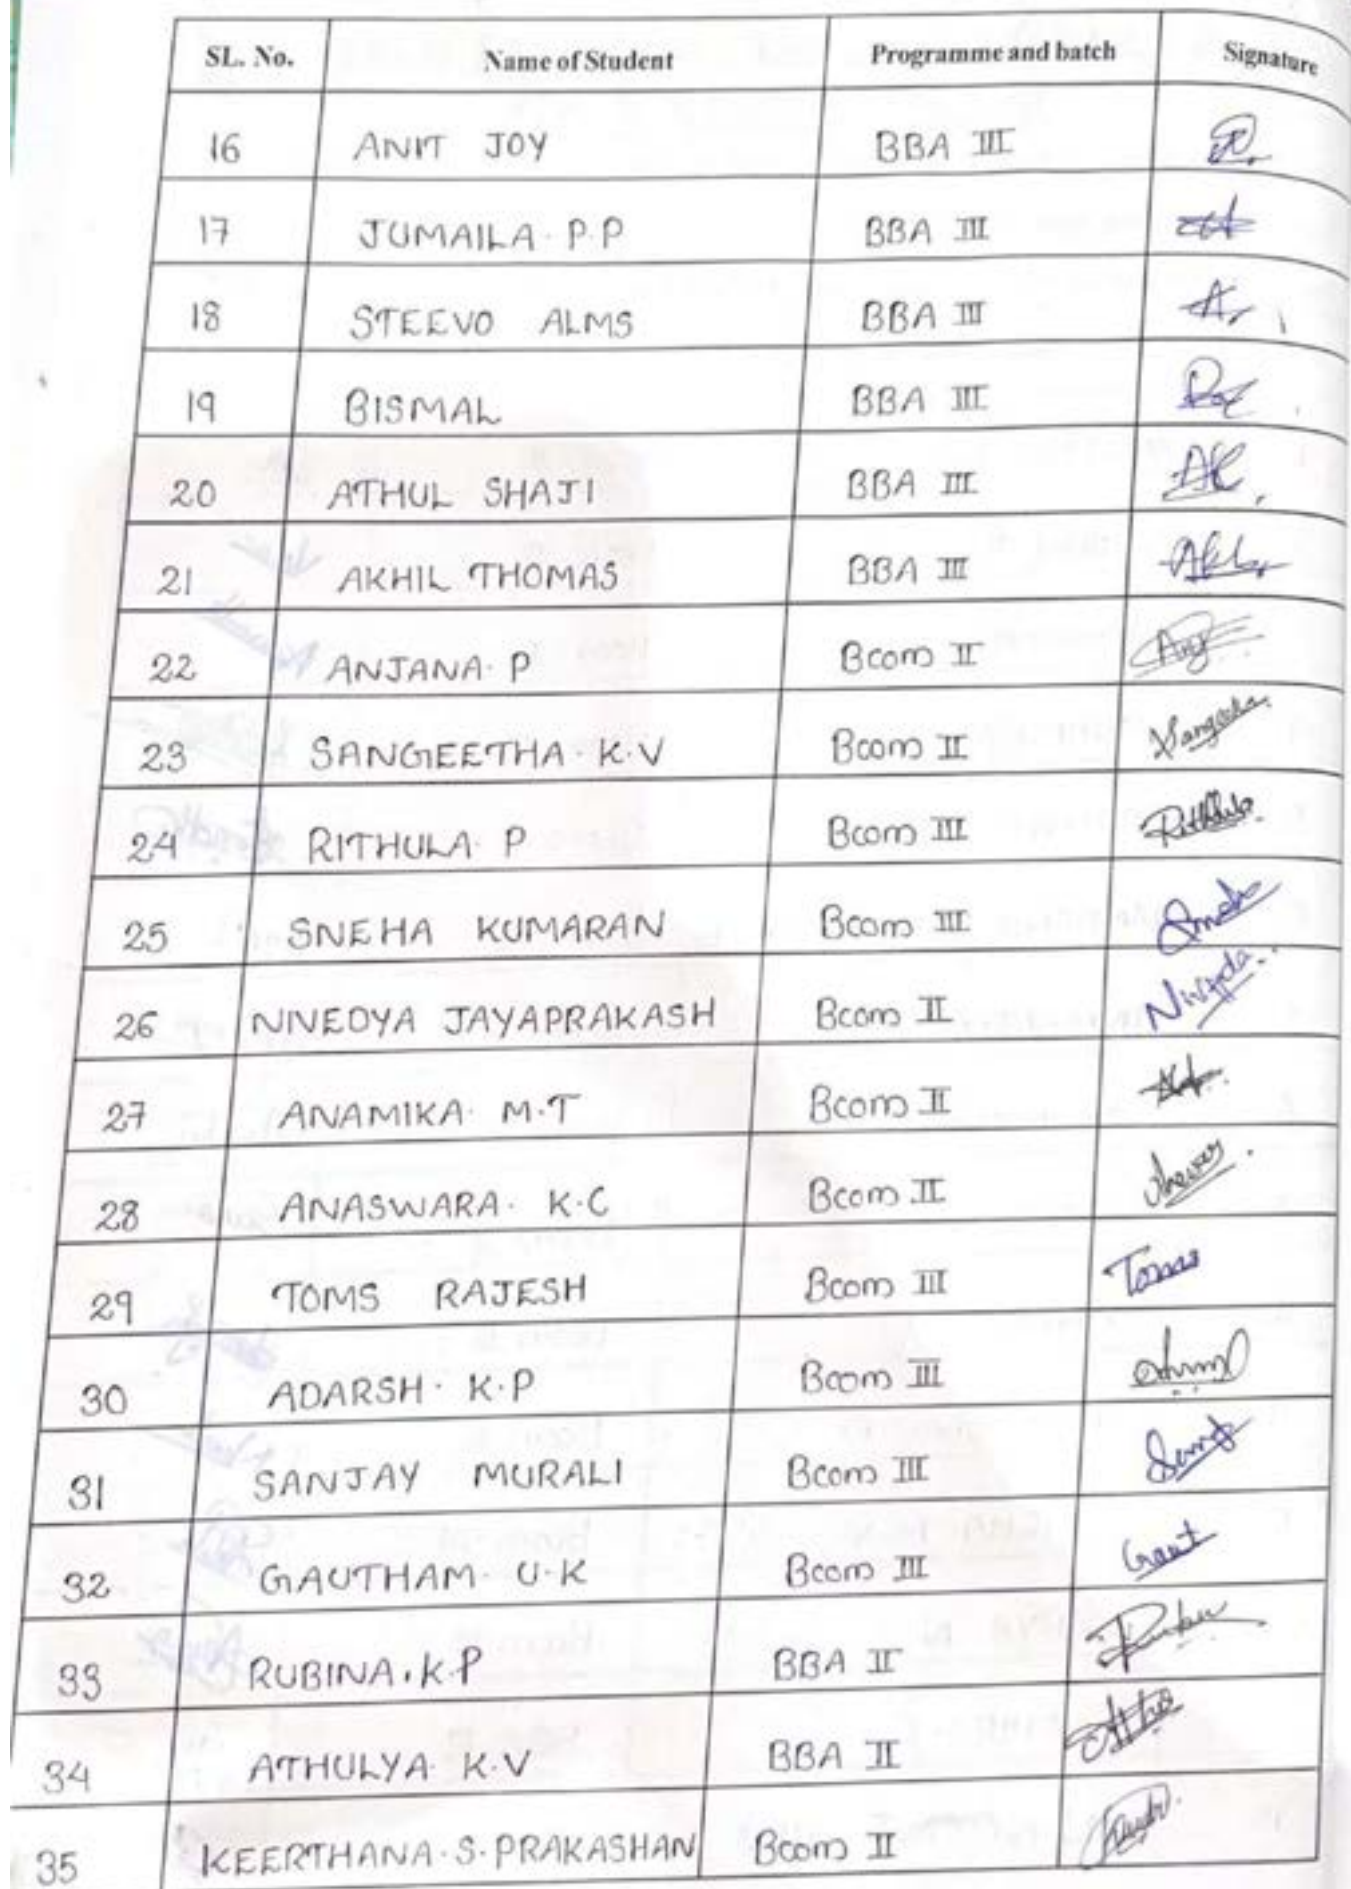 SL. No. Name of Student Programme and batch Signature
16 ANIT JOY BBA III
17 JUMAILA. P.P BBA III
18 STEEVO ALMS BBA III
19 BISMAL BBA III
20 ATHUL SHAJI BBA III
21 AKHIL THOMAS BBA III
22 ANJANA. P Bcom II
23 SANGEETHA. K.V Bcom II Sangeetha
24 RITHULA. P Bcom III
25 SNEHA KUMARAN Bcom III Sneha
26 NIVEDYA JAYAPRAKASH Bcom II
27 ANAMIKA. M.T Bcom II
28 ANASWARA. K.C Bcom II
29 TOMS RAJESH Bcom III Toms
30 ADARSH. K.P Bcom III
31 SANJAY MURALI Bcom III
32 GAUTHAM. U.K Bcom III Gaut
33 RUBINA. K.P BBA II
34 ATHULYA. K.V BBA II
35 KEERTHANA. S. PRAKASHAN Bcom II